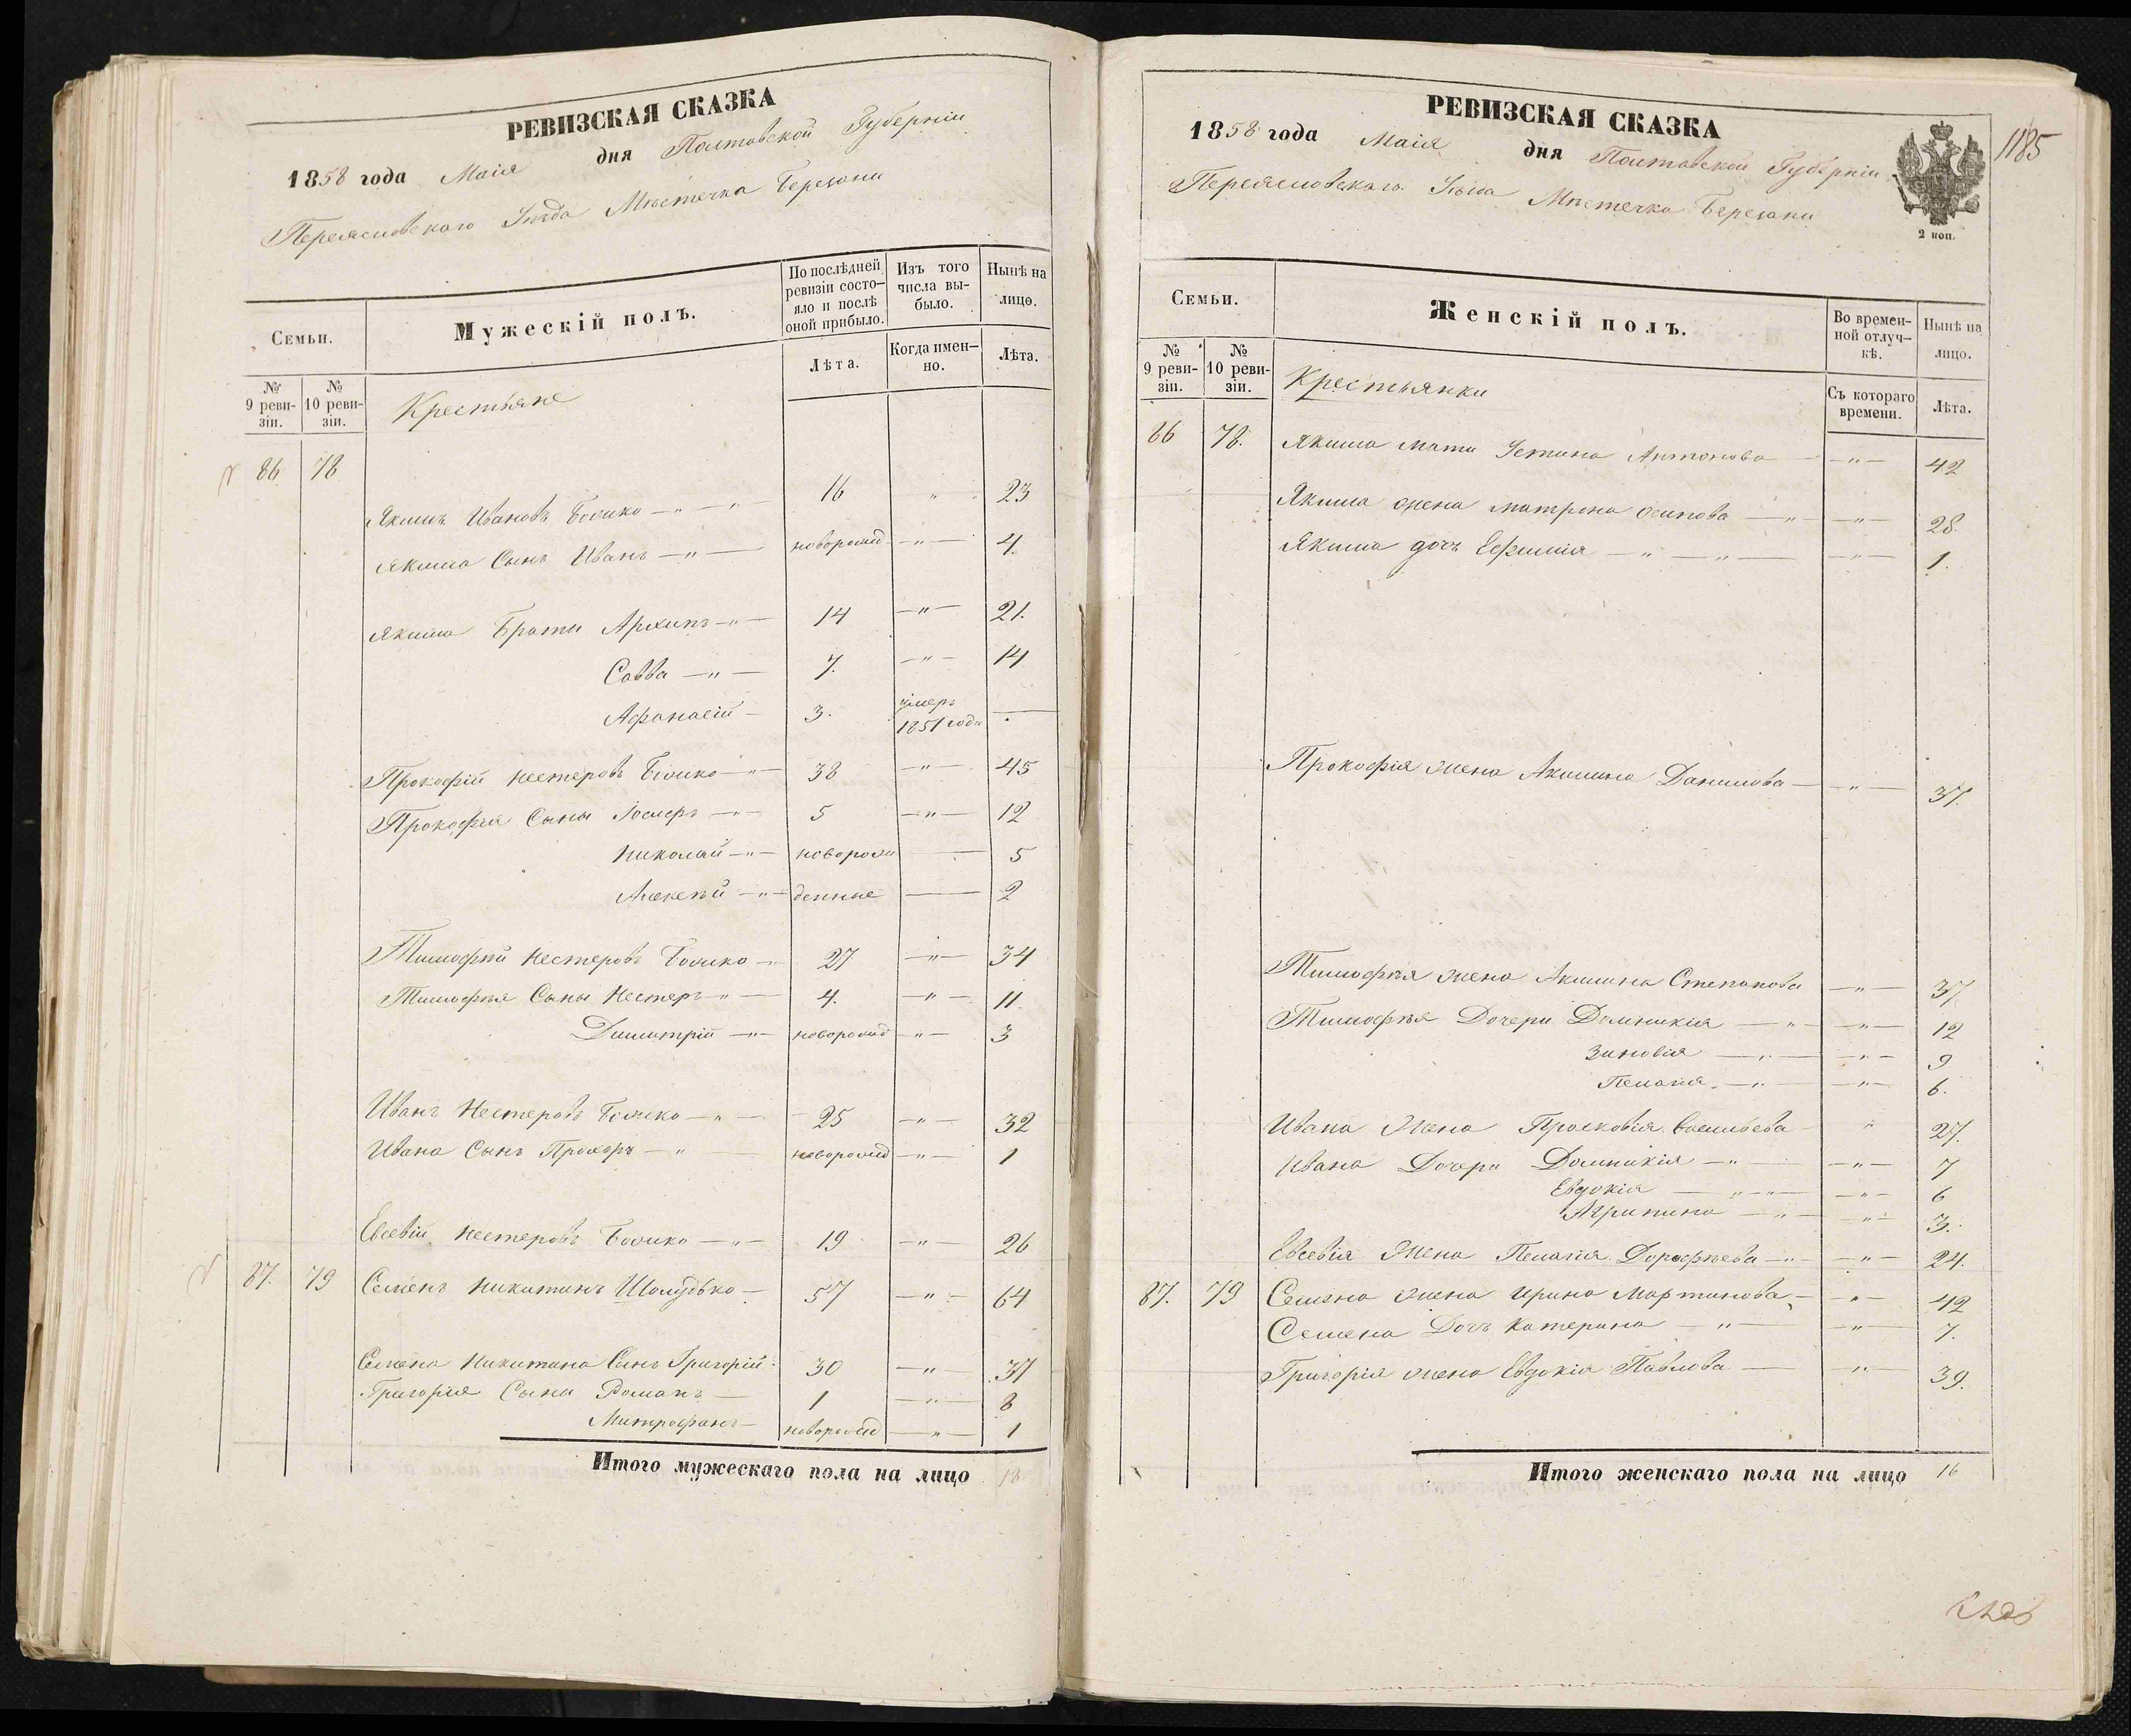 РЕВИЗСКАЯ СКАЗКА
1858 года Маія дня Полтавской Губерніи
Переясловскаго Уѣзда Мѣстечка Березани
Семьи.
Мужескій полъ.
По послѣдней ревизіи состояло и послѣ оной прибыло.
Изъ того числа выбыло.
Нынѣ на лицо.
№ 9 ревизіи.
№ 10 ревизіи.
Лѣта.
Когда именно.
Лѣта.
Крестьяне
86 78
Якимъ Ивановъ 16 " 23
Якима Сынъ Иванъ —"— новорожд —"— 4.
Якима Браты Архипъ —"— 14 —"— 21.
Савва —"— 7. —"— 14
Афанасій — 3. умеръ 1851 года —
Прокофій Нестеровъ 38 —"— 45
Прокофія Сыны 5 —"— 12
Николай —"— новорож — 5
Алексѣй —"— денные — 2
Тимофѣй Нестеровъ 27 —"— 34
Тимофѣя Сыны Нестеръ —"— 4. —"— 11.
Димитрій —"— новорожд —"— 3
Иванъ Нестеровъ 25 —"— 32
Ивана Сынъ Прохоръ —"— новорожд —"— 1
Евсевій Нестеровъ 19 —"— 26
87. 79 Семенъ Никитинъ Шолудько — 57 —"— 64
Семена Никитина Сынъ Григорій 30 —"— 37
Григорія Сыны Романъ — 1 —"— 8
Митрофанъ — новорожд —"— 1
Итого мужескаго пола на лицо 18
РЕВИЗСКАЯ СКАЗКА
1185
1858 года Маія дня Полтавской Губерніи
Переясловскаго Уѣзда Мѣстечка Березани
2 коп.
Семьи.
Женскій полъ.
Во временной отлучкѣ.
Нынѣ на лицо.
№ 9 ревизіи.
№ 10 ревизіи.
Съ котораго времени.
Лѣта.
Крестьянки
86 78. Якима мати Устина Антонова —"— 42
Якима жена Матрона Осипова —"— —"— 28.
Якима дочь Ефимія —"— —"— —"— 1.
Прокофія жена Акилина Данилова — —"— 37.
Тимофѣя жена Акилина Степанова —"— 37.
Тимофѣя Дочери Домникія —"— —"— 12
Зиновія —"— —"— 9
Пелагія —"— —"— 6.
Ивана Жена Прасковія Васильева " 27.
Ивана Дочери Домникія —"— —"— 7
Евдокія —"—"— —"— 6
Агрипина —"— —"— 3.
Евсевія Жена Пелагія Дорофѣева —"— —"— 24.
87. 79 Семена жена Ирина Мартинова — —"— 42
Семена Дочь Катерина —"— —"— 7.
Григорія жена Евдокія Павлова — —"— 39.
Итого женскаго пола на лицо 16